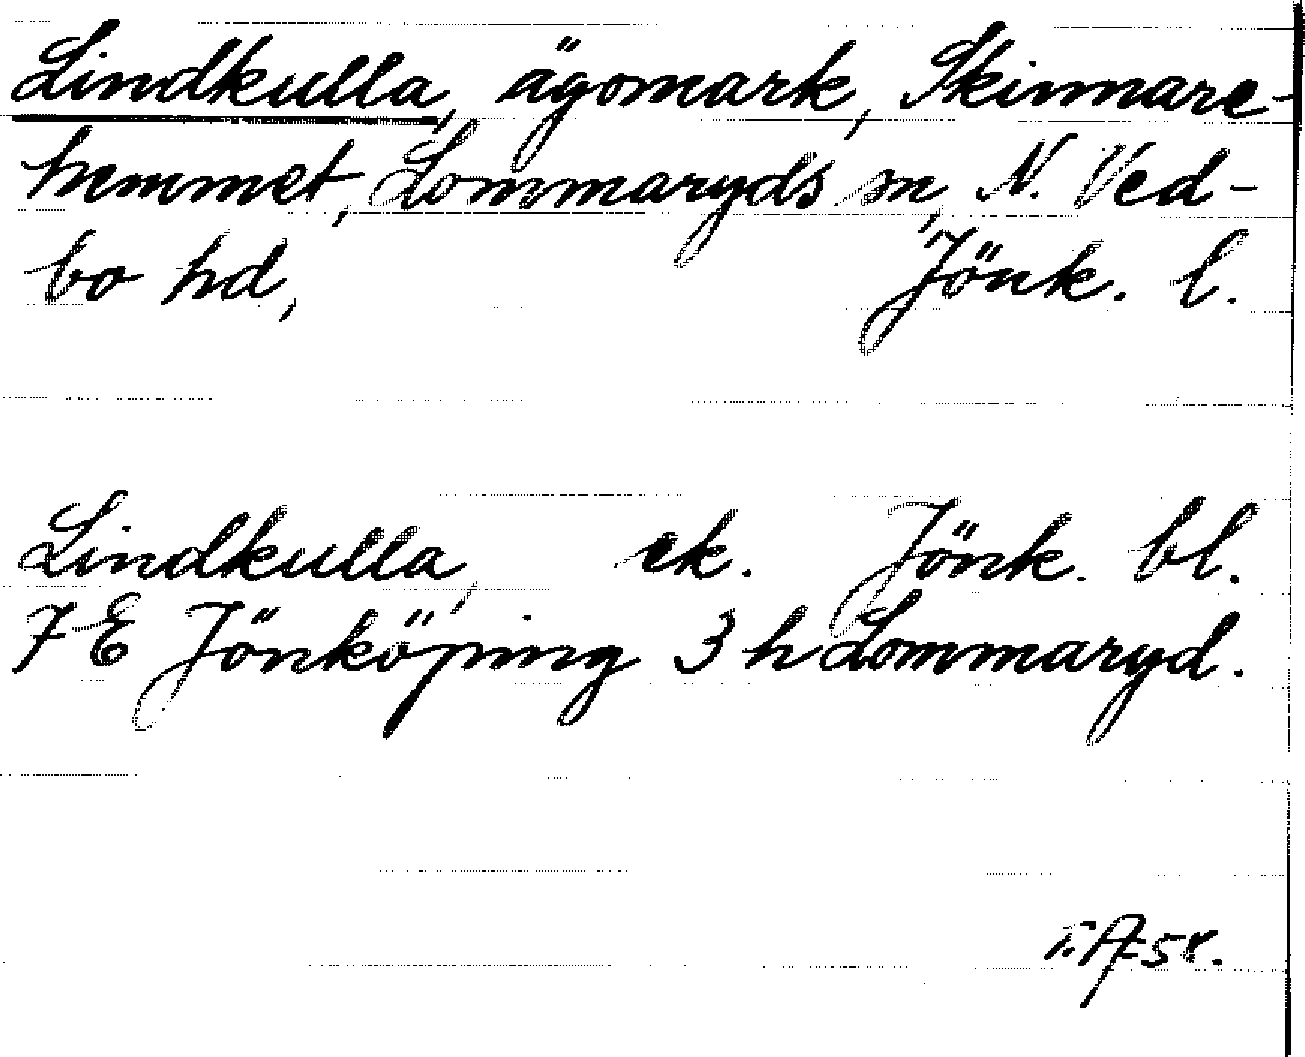 Lindkulla, ägomark, Skinnare-
hemmet, Lommaryds sn, N. Ved-
bo hd, Jönk. l.
Lindkulla, ek. Jönk. bl.
7 E Jönköping 3 h Lommaryd.
58.